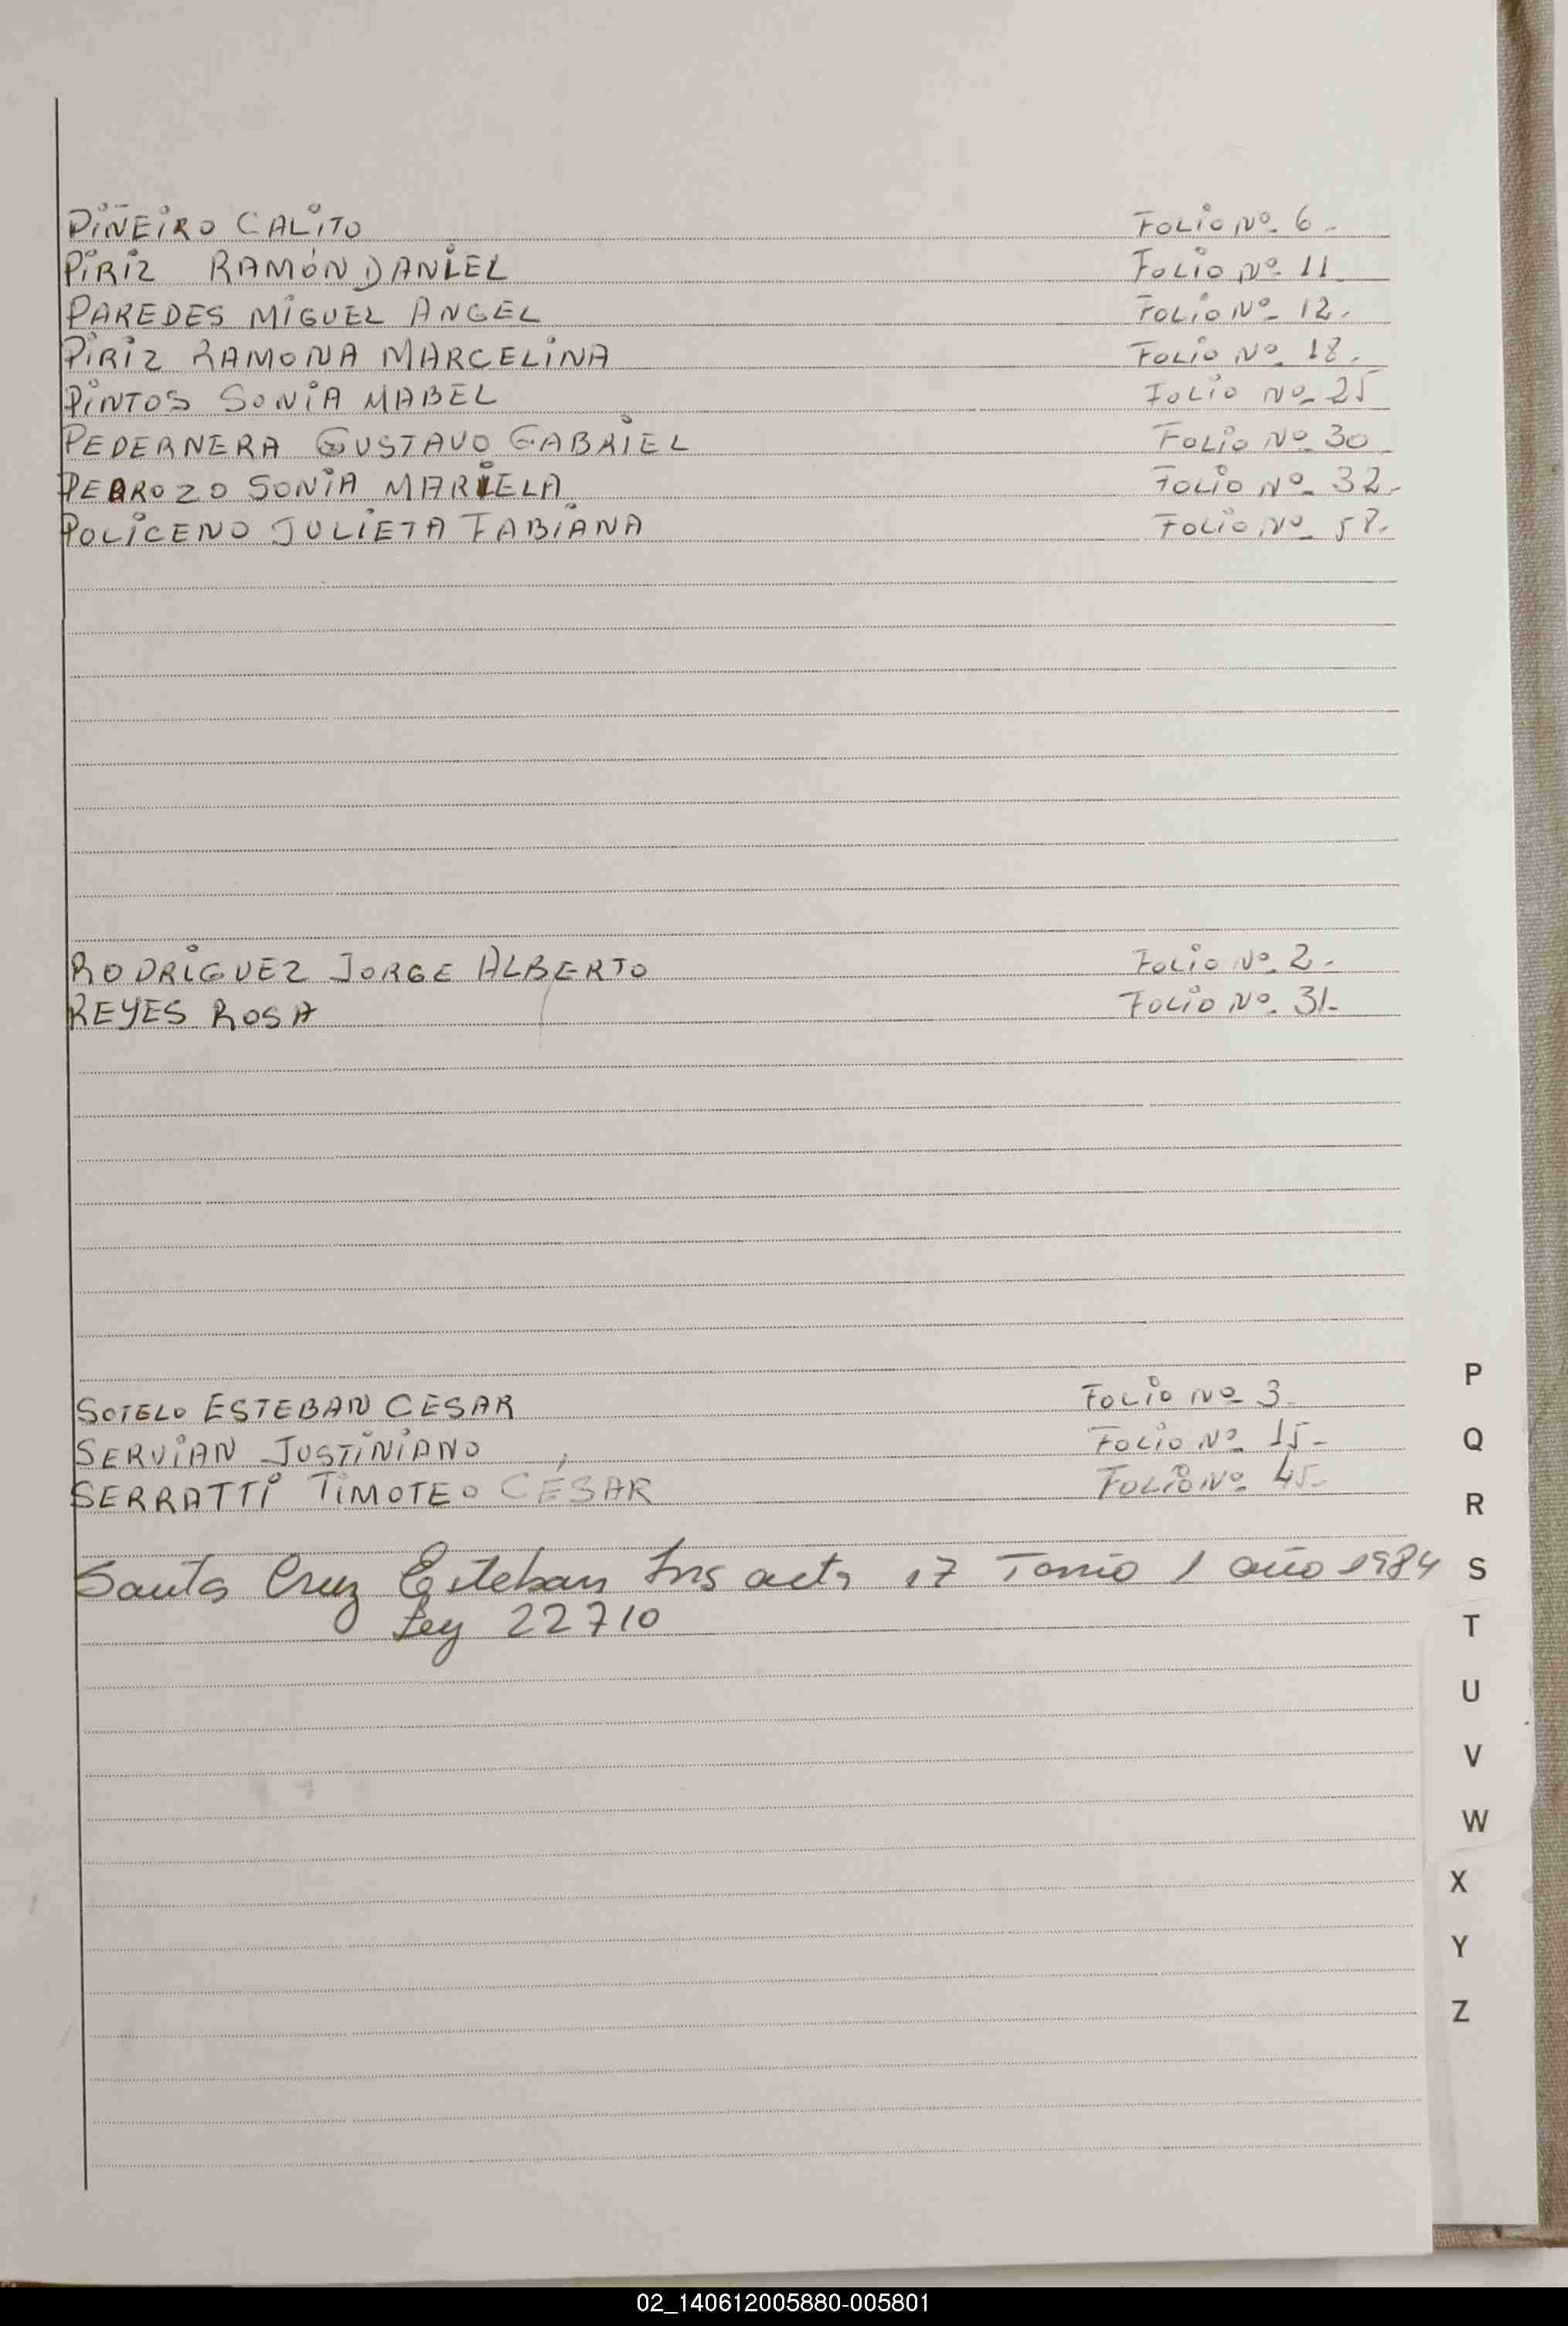 PIÑEIRO CALITO FOLIO Nº 6.-
PIRIZ RAMÓN DANIEL FOLIO Nº 11
PAREDES MIGUEL ANGEL FOLIO Nº 12.
PIRIZ RAMONA MARCELINA FOLIO Nº 18.
PINTOS SONIA MABEL FOLIO Nº 25
PEDERNERA GUSTAVO GABRIEL FOLIO Nº 30
PEDROZO SONIA MARIELA FOLIO Nº 32.-
POLICENO JULIETA FABIANA FOLIO Nº
RODRIGUEZ JORGE ALBERTO FOLIO Nº 2.-
REYES ROSA FOLIO Nº 31.-
SOTELO ESTEBAN CESAR FOLIO Nº 3.-
SERVIAN JUSTINIANO FOLIO Nº 15.-
SERRATTI TIMOTEO CÉSAR FOLIO Nº 45.-
Santa Cruz Esteban Ins acta 17 Tomo 1 año 1984
Ley 22710
P
Q
R
S
T
U
V
W
X
Y
Z
02_140612005880-005801